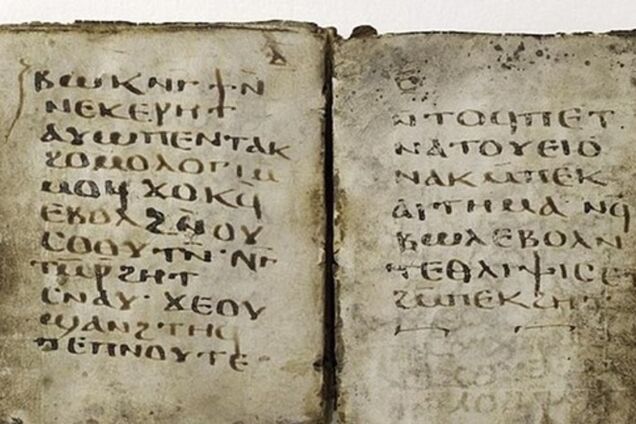 ⲃⲱⲕⲛⲅϯⲛ̄
ⲛⲉⲕⲉⲣⲏⲧ
ⲁⲩⲱⲡⲉⲛⲧⲁⲕ
ϩⲟⲙⲟⲗⲟⲅⲓⲁ
ⲙⲙⲟϥ ϫⲟⲕϥ̄
ⲉⲃⲟⲗϩⲛ̄ⲟⲩ
ⲥⲟⲟⲩⲧⲛ̄·ⲛⲅ
ⲧⲙ̄ⲣϩⲏⲧ
ⲥⲛⲁⲩ· ϫⲉⲟⲩ
ϣⲁⲛϩⲧⲏϥ
ⲡⲉⲡⲛⲟⲩⲧⲉ
ⲛⲧⲟϥⲡⲉⲧ
ⲛⲁⲧⲟⲩⲉⲓⲟ
ⲛⲁⲕⲙ̄ⲡⲉⲕ
ⲁⲓⲧⲏⲙⲁ ⲛϥ̄
ⲃⲱⲗⲉⲃⲟⲗⲛ
ⲧⲉⲑⲗⲓⲯⲓⲥⲉⲧ
ϩⲙ̄ⲡⲉⲕϩⲏⲧ